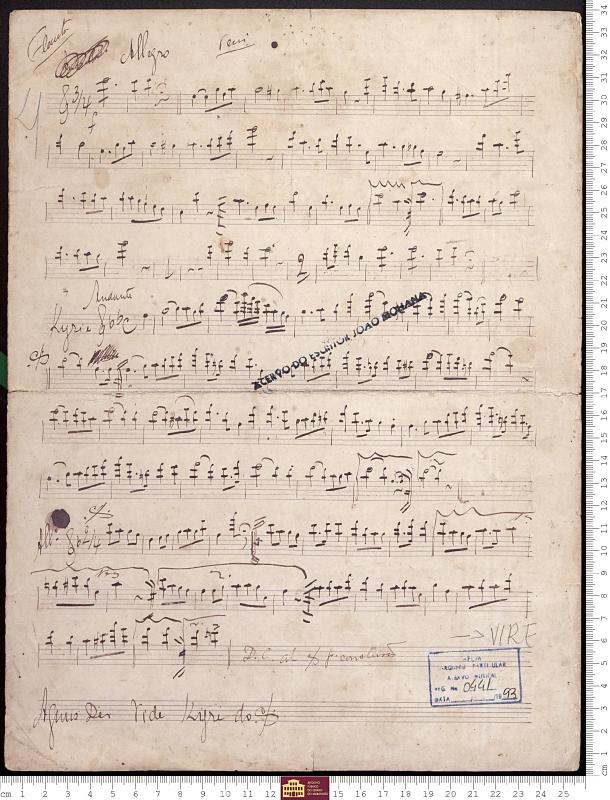 Flauta
Allegro Veni
3/4
f
Andante
Kyrie
ACERVO DO ESCRITOR JOÃO MOHANA
2
All.º 2/4
2.
→ VIRE
D.C. al
APEM
ARQUIVO PARTICULAR
REG. Nº 0441
DATA 93
Agnus Dei Vide Kyri do
cm 1 2 3 4 5 6 7 8 9 10 11 12 13 14 15 16 17 18 19 20 21 22 23 24 25